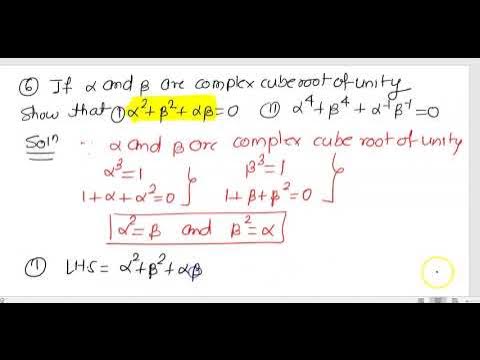 ⑥ If α and β are complex cube root of unity
show that ① α²+β²+αβ=0 ⑪ α⁴+β⁴+α⁻¹β⁻¹=0
Solⁿ ∵ α and β are complex cube root of unity
α³=1 β³=1
1+α+α²=0 1+β+β²=0
α²=β and β²=α
① LHS= α²+β²+αβ